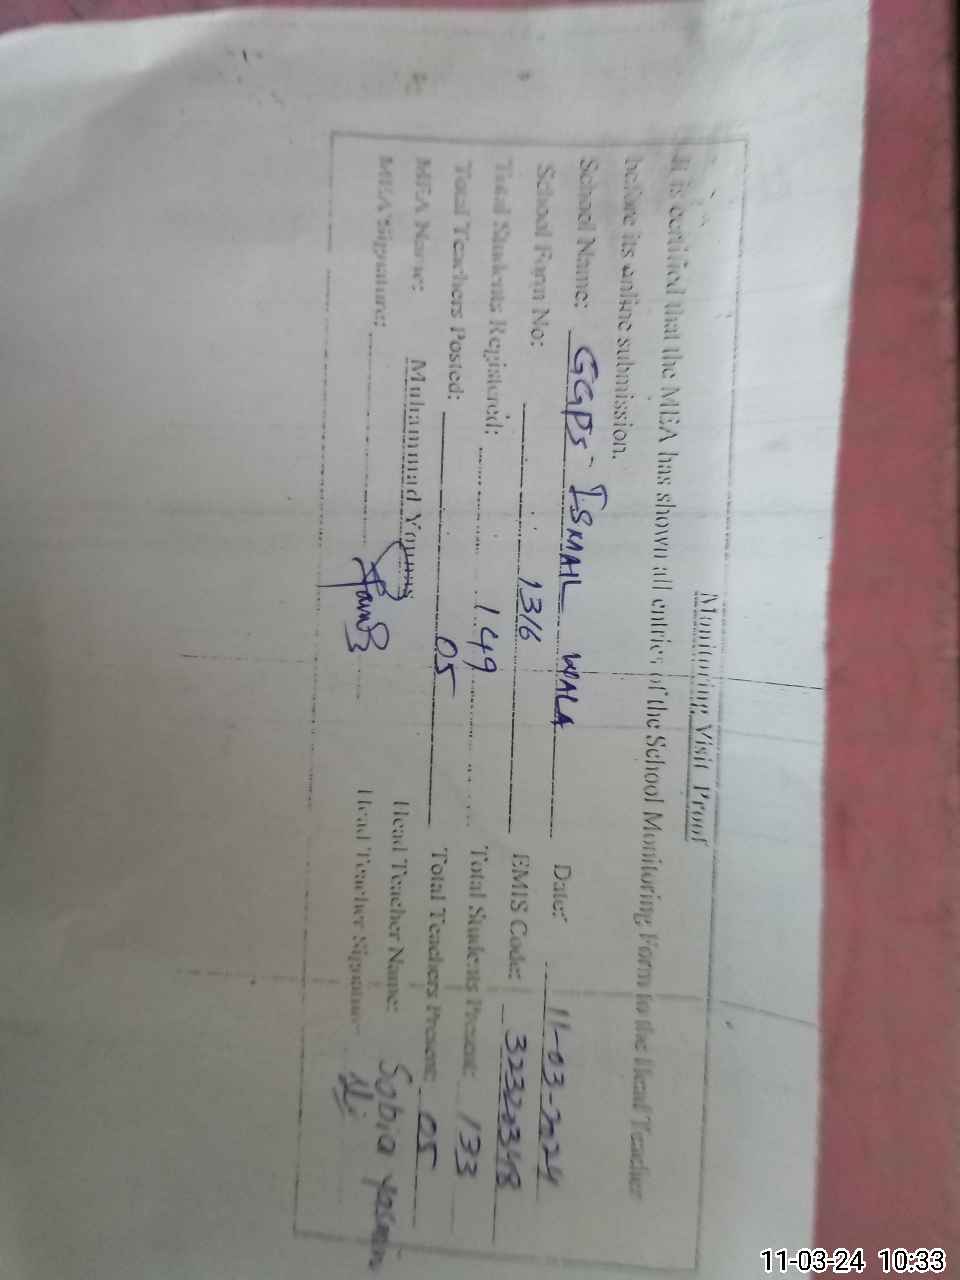 Monitoring Visit Proof
It is certified that the MEA has shown all entries of the School Monitoring Form to the Head Teacher
before its online submission.
School Name: GGPS - ISMAIL WALA Date: 11-03-2024
School Form No: 1316 EMIS Code: 32320348
Total Students Registered: 149 Total Students Present: 133
Total Teachers Posted: 05 Total Teachers Present: 05
MEA Name: Muhammad Younis Head Teacher Name: Sobia Yasmin
MEA Signature: Head Teacher Signature
11-03-24 10:33